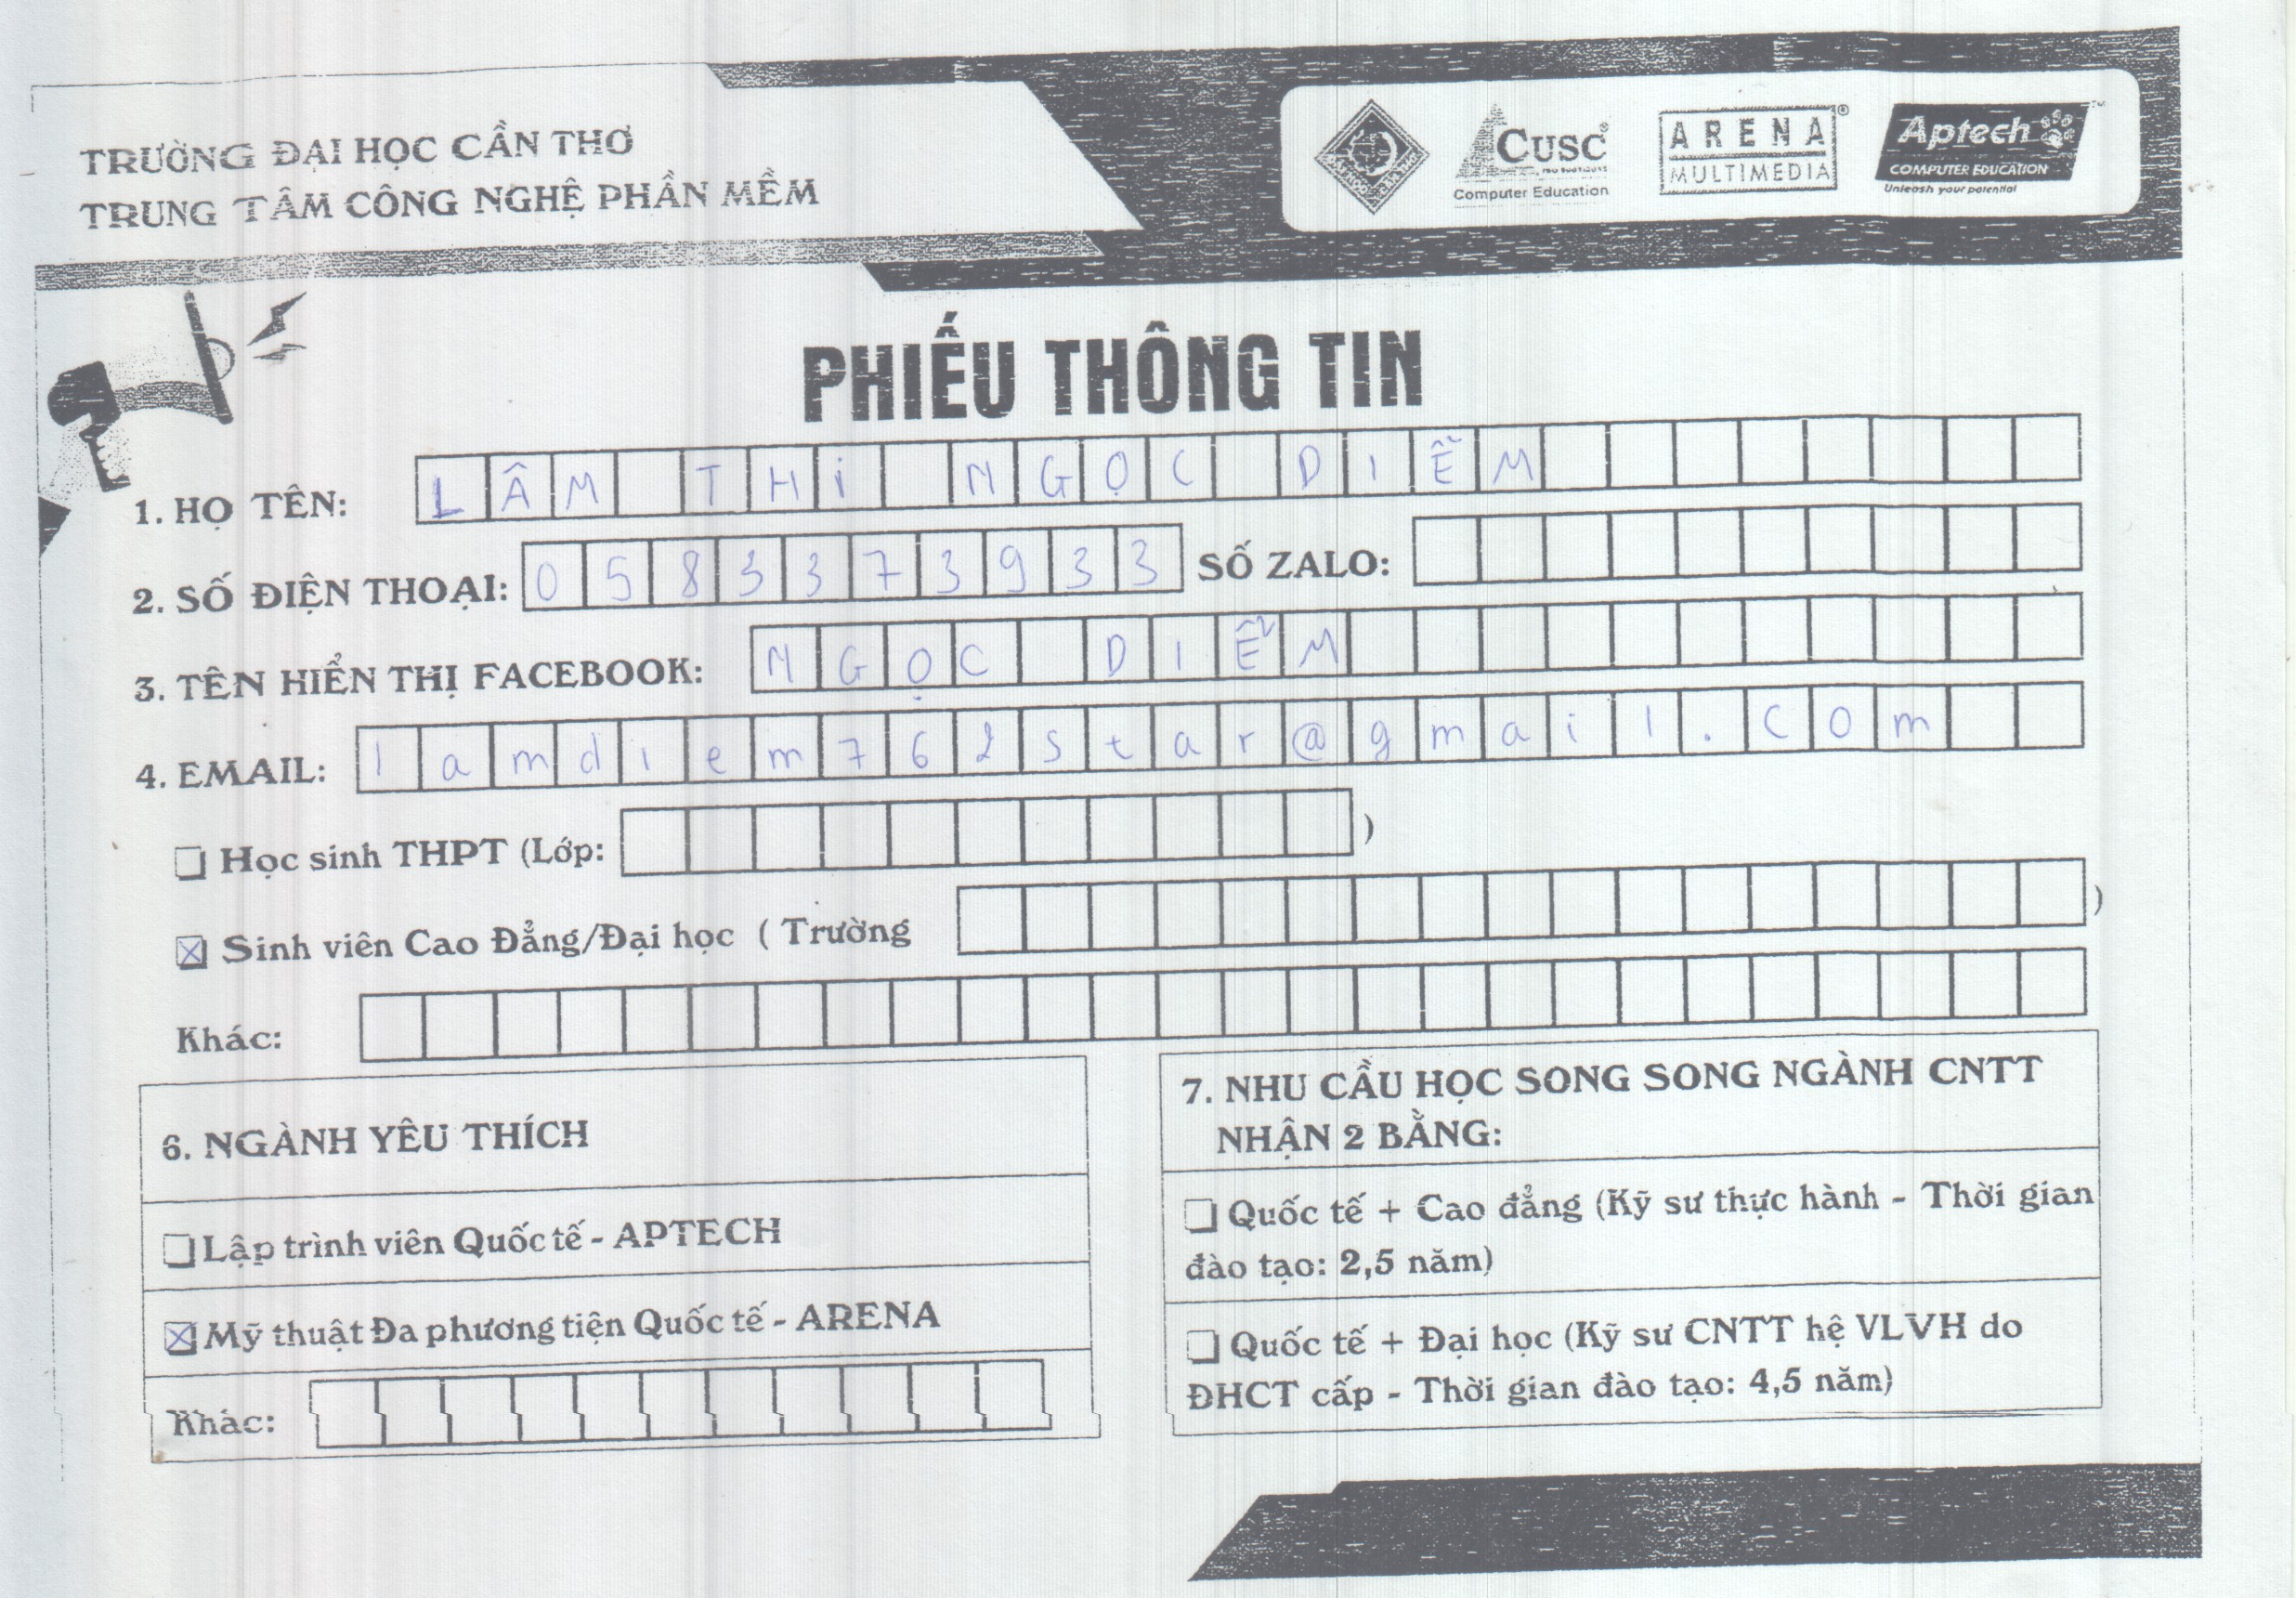 TRƯỜNG ĐẠI HỌC CẦN THƠ
TRUNG TÂM CÔNG NGHỆ PHẦN MỀM
CUSC®
Computer Education
ARENA®
MULTIMEDIA
Aptech™
COMPUTER EDUCATION
Unleash your potential
PHIẾU THÔNG TIN
1. HỌ TÊN: LÂM THỊ NGỌC DIỄM
2. SỐ ĐIỆN THOẠI: 0583373933 SỐ ZALO:
3. TÊN HIỂN THỊ FACEBOOK: NGỌC DIỄM
4. EMAIL: lamdiem762star@gmail.com
Học sinh THPT (Lớp: )
Sinh viên Cao Đẳng/Đại học ( Trường )
Khác:
6. NGÀNH YÊU THÍCH
Lập trình viên Quốc tế - APTECH
Mỹ thuật Đa phương tiện Quốc tế - ARENA
Khác:
7. NHU CẦU HỌC SONG SONG NGÀNH CNTT
NHẬN 2 BẰNG:
Quốc tế + Cao đẳng (Kỹ sư thực hành - Thời gian
đào tạo: 2,5 năm)
Quốc tế + Đại học (Kỹ sư CNTT hệ VLVH do
ĐHCT cấp - Thời gian đào tạo: 4,5 năm)